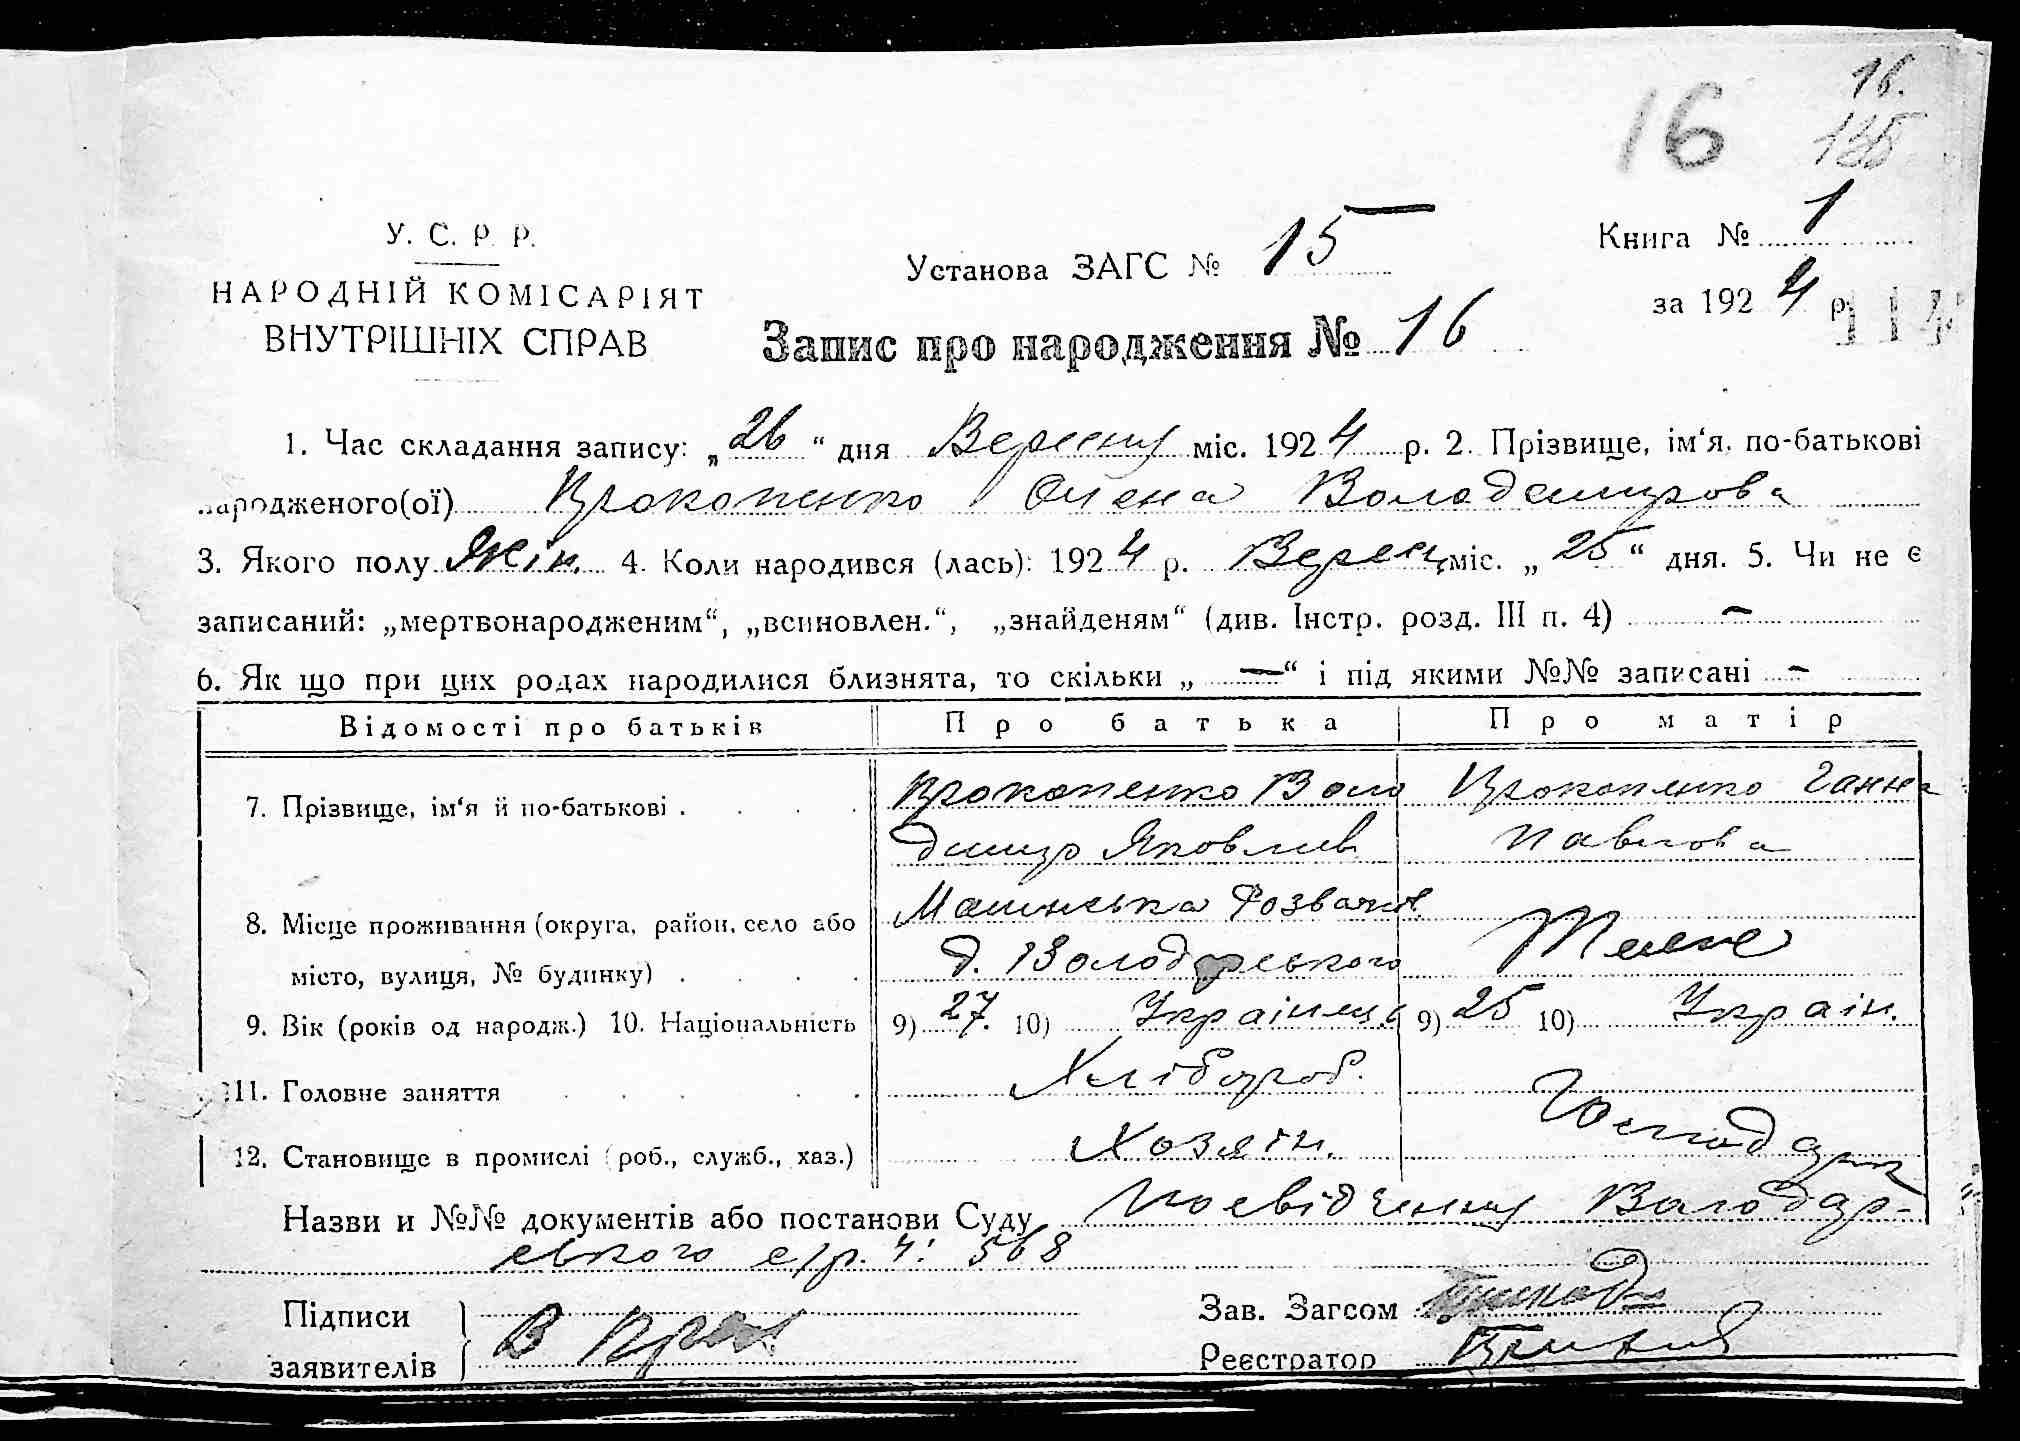 16.
16
125
У. С. Р. Р.
НАРОДНІЙ КОМІСАРІЯТ
ВНУТРІШНІХ СПРАВ
Установа ЗАГС № 15
Книга № 1
за 192 4 р.
114
Запис про народження № 16
1. Час складання запису: „26“ дня Вересня міс. 1924 р. 2. Прізвище, ім‘я, по-батькові
народженого(ої) Прокопенко Олена Володимирова
3. Якого полу Жін. 4. Коли народився (лась): 1924 р. Верес міс. „25“ дня. 5. Чи не є
записаний: „мертвонародженим“, „всиновлен.“, „знайденям“ (див. Інстр. розд. III п. 4) —
6. Як що при цих родах народилися близнята, то скільки „—“ і під якими №№ записані —
Відомості про батьків Про батька Про матір
7. Прізвище, ім‘я й по-батькові . . . . Прокопенко Воло Прокопенко Ганна
димир Яковлив Павлова
8. Місце проживання (округа, район, село або Малинська Розваж
місто, вулиця, № будинку) . . . . д. Володарського Теже
9. Вік (років од народж.) 10. Національність 9) 27. 10) Українец 9) 25 10) Україн.
11. Головне заняття . . . . . Хлібороб.
12. Становище в промислі (роб., служб., хаз.) Хозяін. Господар
Назви и №№ документів або постанови Суду Посвідчення Володар-
ського с/р. ч: 568
Підписи
заявителів В Про
Зав. Загсом
Реєстратор